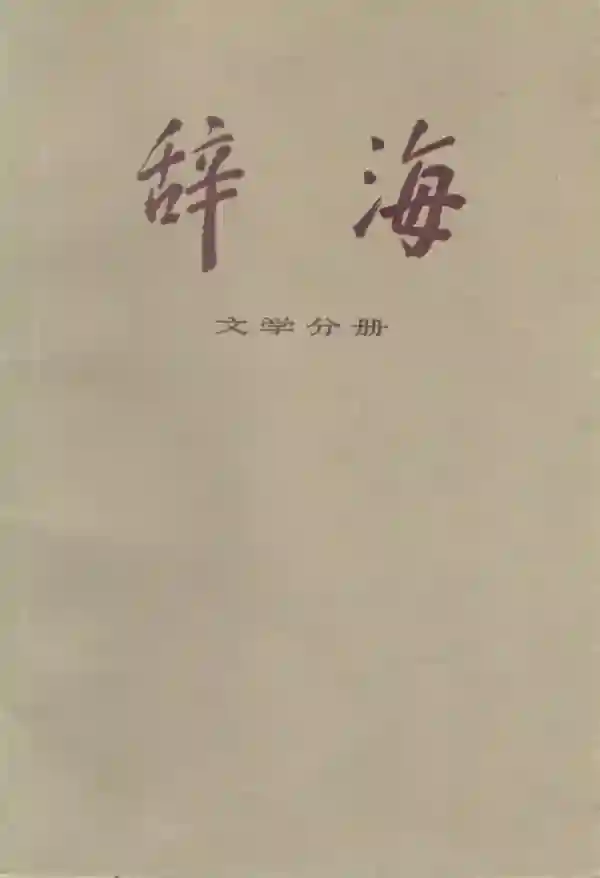 辞海
文学分册